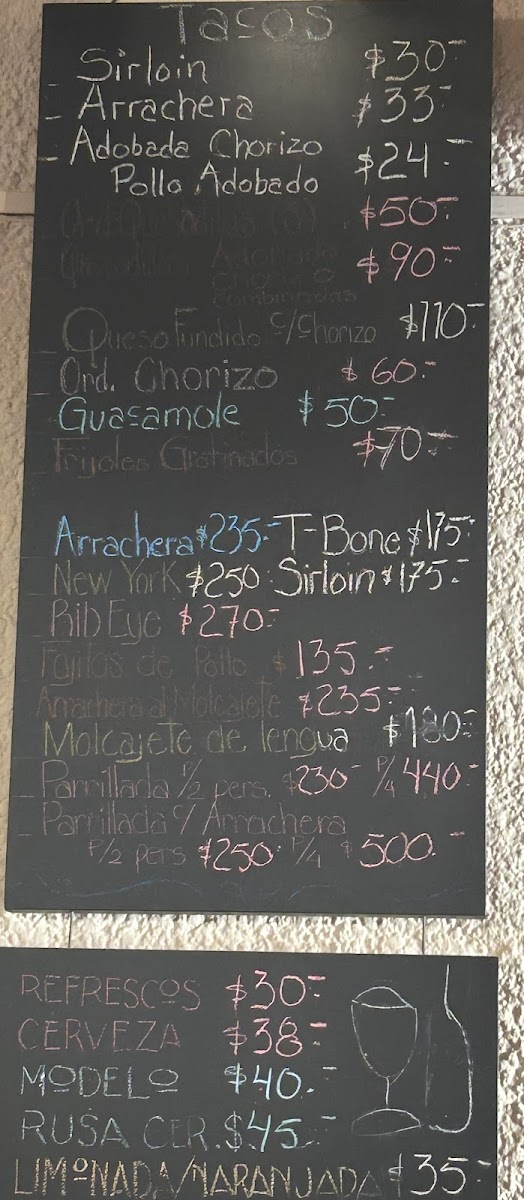 Tacos
Sirloin $30.-
Arrachera $33.-
Adobada Chorizo
Pollo Adobado $24.-
Ord. Quesadillas (3) $50.-
Quesadillas Adobada $90.-
Chorizo
Combinadas
Queso Fundido c/Chorizo $110.-
Ord. Chorizo $60.-
Guacamole $50.-
Frijoles Gratinados $70.-
Arrachera $235.- T-Bone $175.-
New York $250.- Sirloin $175.-
Rib Eye $270.-
Fajitas de Pollo $135.-
Arrachera al Molcajete $235.-
Molcajete de lengua $180.-
Parrillada P/2 pers. $230.- P/4 440.-
Parrillada c/Arrachera
P/2 pers $250.- P/4 $500.-
REFRESCOS $30.-
CERVEZA $38.-
MODELO $40.-
RUSA CER. $45.-
LIMONADA/NARANJADA $35.-